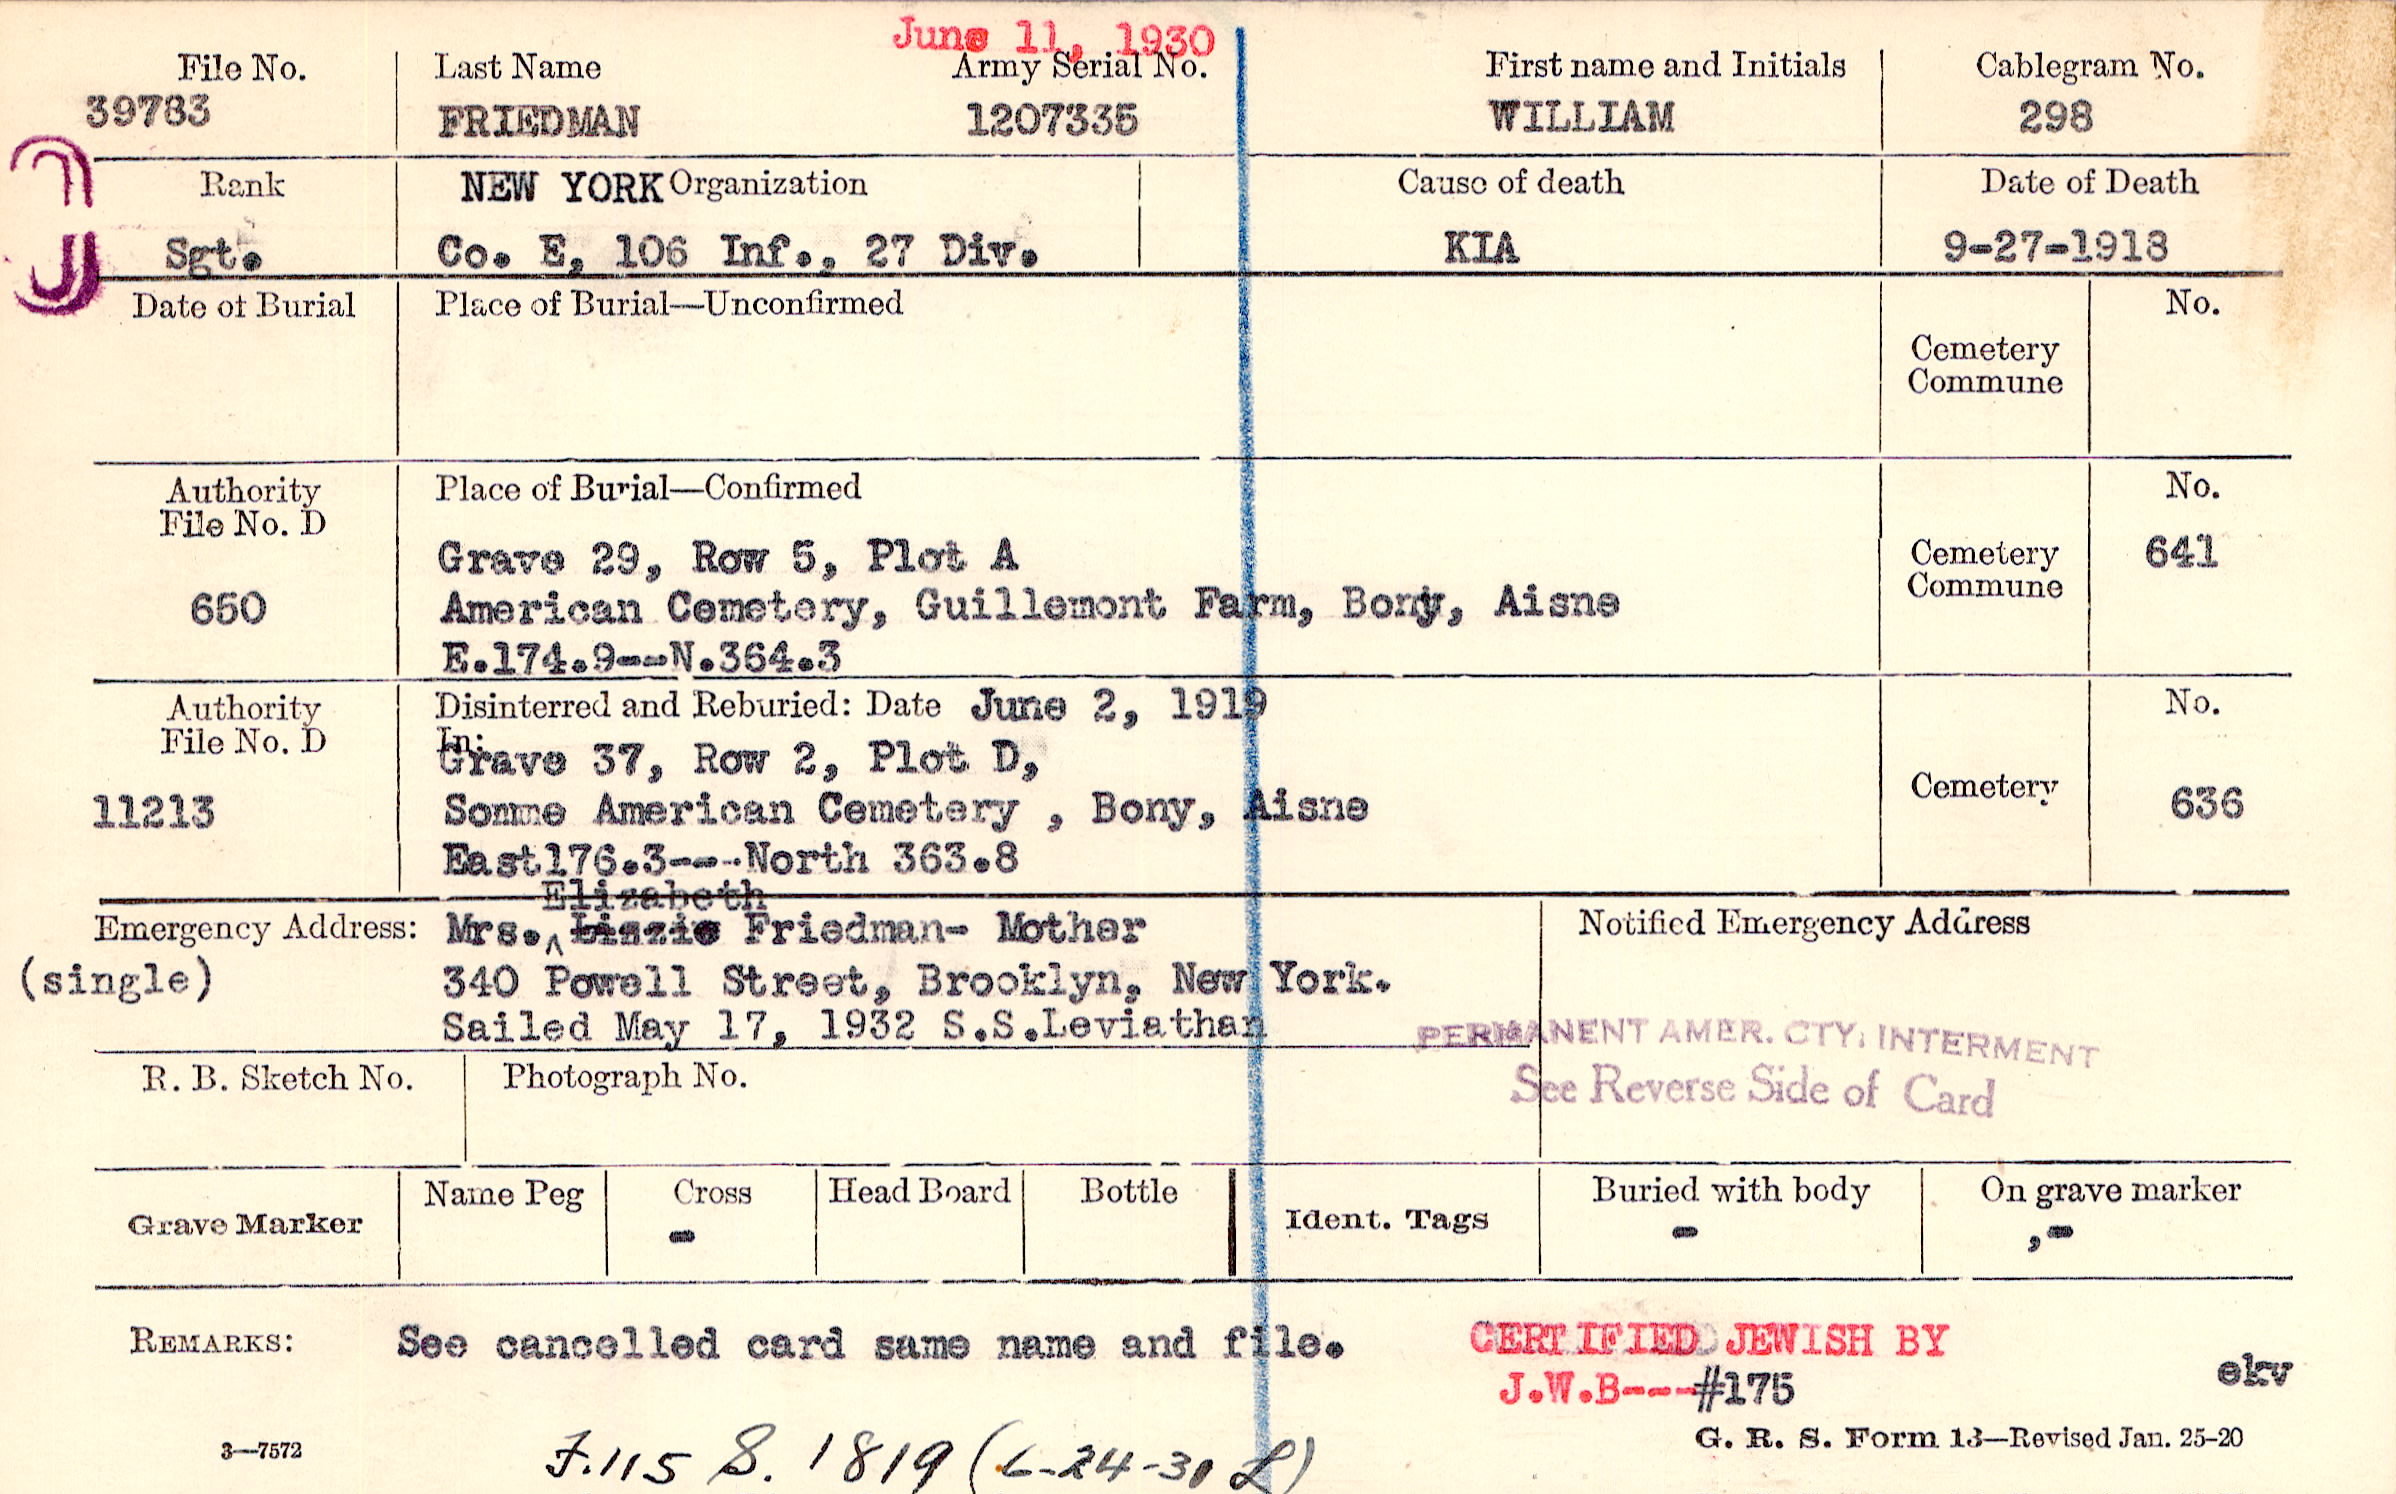 June 11, 1930
File No. Last Name Army Serial No. First name and Initials Cablegram No.
39783 FRIEDMAN 1207335 WILLIAM 298
Rank NEW YORK Organization Cause of death Date of Death
Sgt. Co. E, 106 Inf., 27 Div. KIA 9-27-1918
Date of Burial Place of Burial—Unconfirmed No.
Cemetery
Commune
Authority Place of Burial—Confirmed No.
File No. D
Grave 29, Row 5, Plot A Cemetery 641
650 American Cemetery, Guillemont Farm, Bony, Aisne Commune
E.174.9--N.364.3
Authority Disinterred and Reburied: Date June 2, 1919 No.
File No. D In:
Grave 37, Row 2, Plot D, Cemetery
11213 Somme American Cemetery , Bony, Aisne 636
East176.3---North 363.8
Elizabeth
Emergency Address: Mrs. Lizzie Friedman- Mother Notified Emergency Address
(single) 340 Powell Street, Brooklyn, New York.
Sailed May 17, 1932 S.S.Leviathan
PERMANENT AMER. CTY. INTERMENT
R. B. Sketch No. Photograph No. See Reverse Side of Card
Grave Marker Name Peg Cross Head Board Bottle Ident. Tags Buried with body On grave marker
- - ,-
REMARKS: See cancelled card same name and file. CERTIFIED JEWISH BY
J.W.B---#175 ekv
3—7572 G. R. S. Form 13—Revised Jan. 25-20
F.115 S. 1819 (6-24-30 L)